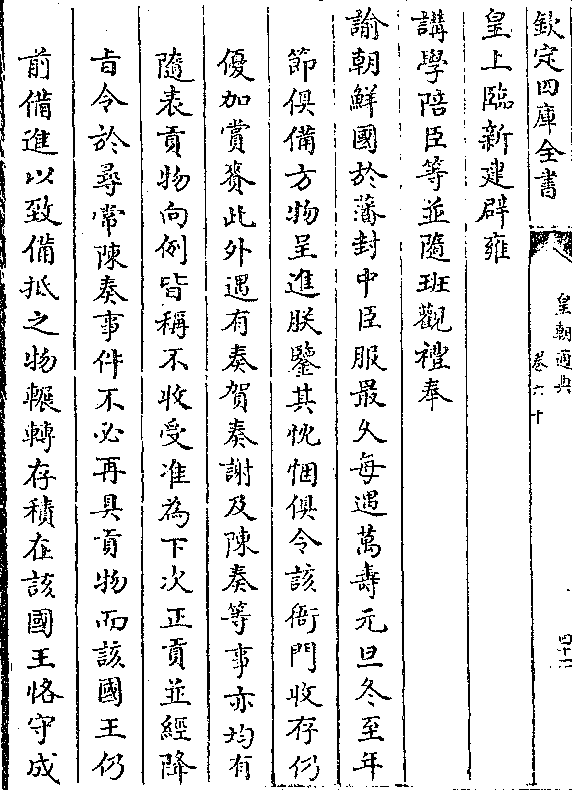 欽定四庫全書
皇朝通典
卷六十
皇上臨新建辟雍
講學陪臣等並隨班觀禮奉
諭朝鮮國於藩封中臣服最久每遇萬壽元旦冬至年
節俱備方物呈進朕鑒其忱悃俱令該衙門收存仍
優加賞賚此外遇有奏賀奏謝及陳奏等事亦均有
隨表貢物向例皆稱不收受准為下次正貢並經降
旨令於尋常陳奏事件不必再具貢物而該國王仍
前備進以致備抵之物輾轉存積在該國王恪守成